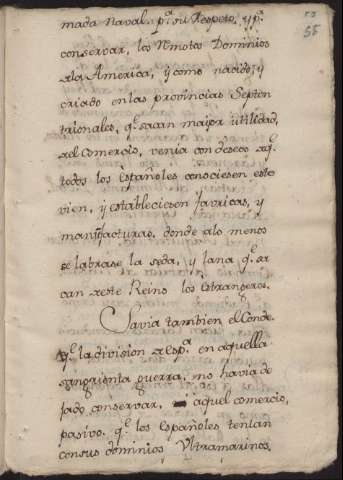 55
mada naval. pª. su Respeto, y pª.
conservar, los Rmotos Dominios
a la America, y como nacido, y
criado en las provincias Septen
trionales, qᵉ. sacan maior utilidad,
del Comercio, venia con deseos aqᵉ.
todos los Españoles conociesen este
vien, y estableciesen favricas, y
manifacturas, donde alo menos
se labrase la seda, y lana qᵉ. sa
can de este Reino los Estrangeros.
Savia tambien el Conde.
qᵉ. la division de Espª. en aquella
sangrienta guerra; no havia de
jado conservar, aquel comercio,
pasivo. qᵉ. los Españoles tenian
con sus dominios Ultramarinos.